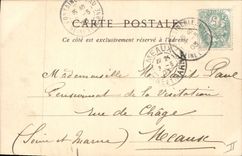 CARTE POSTALE
Ce côté est exclusivement réservé à l'adresse
MEAUX
Mademoiselle Paul
Pensionnat de la Visitation
rue de Châge
(Seine et Marne) Meaux